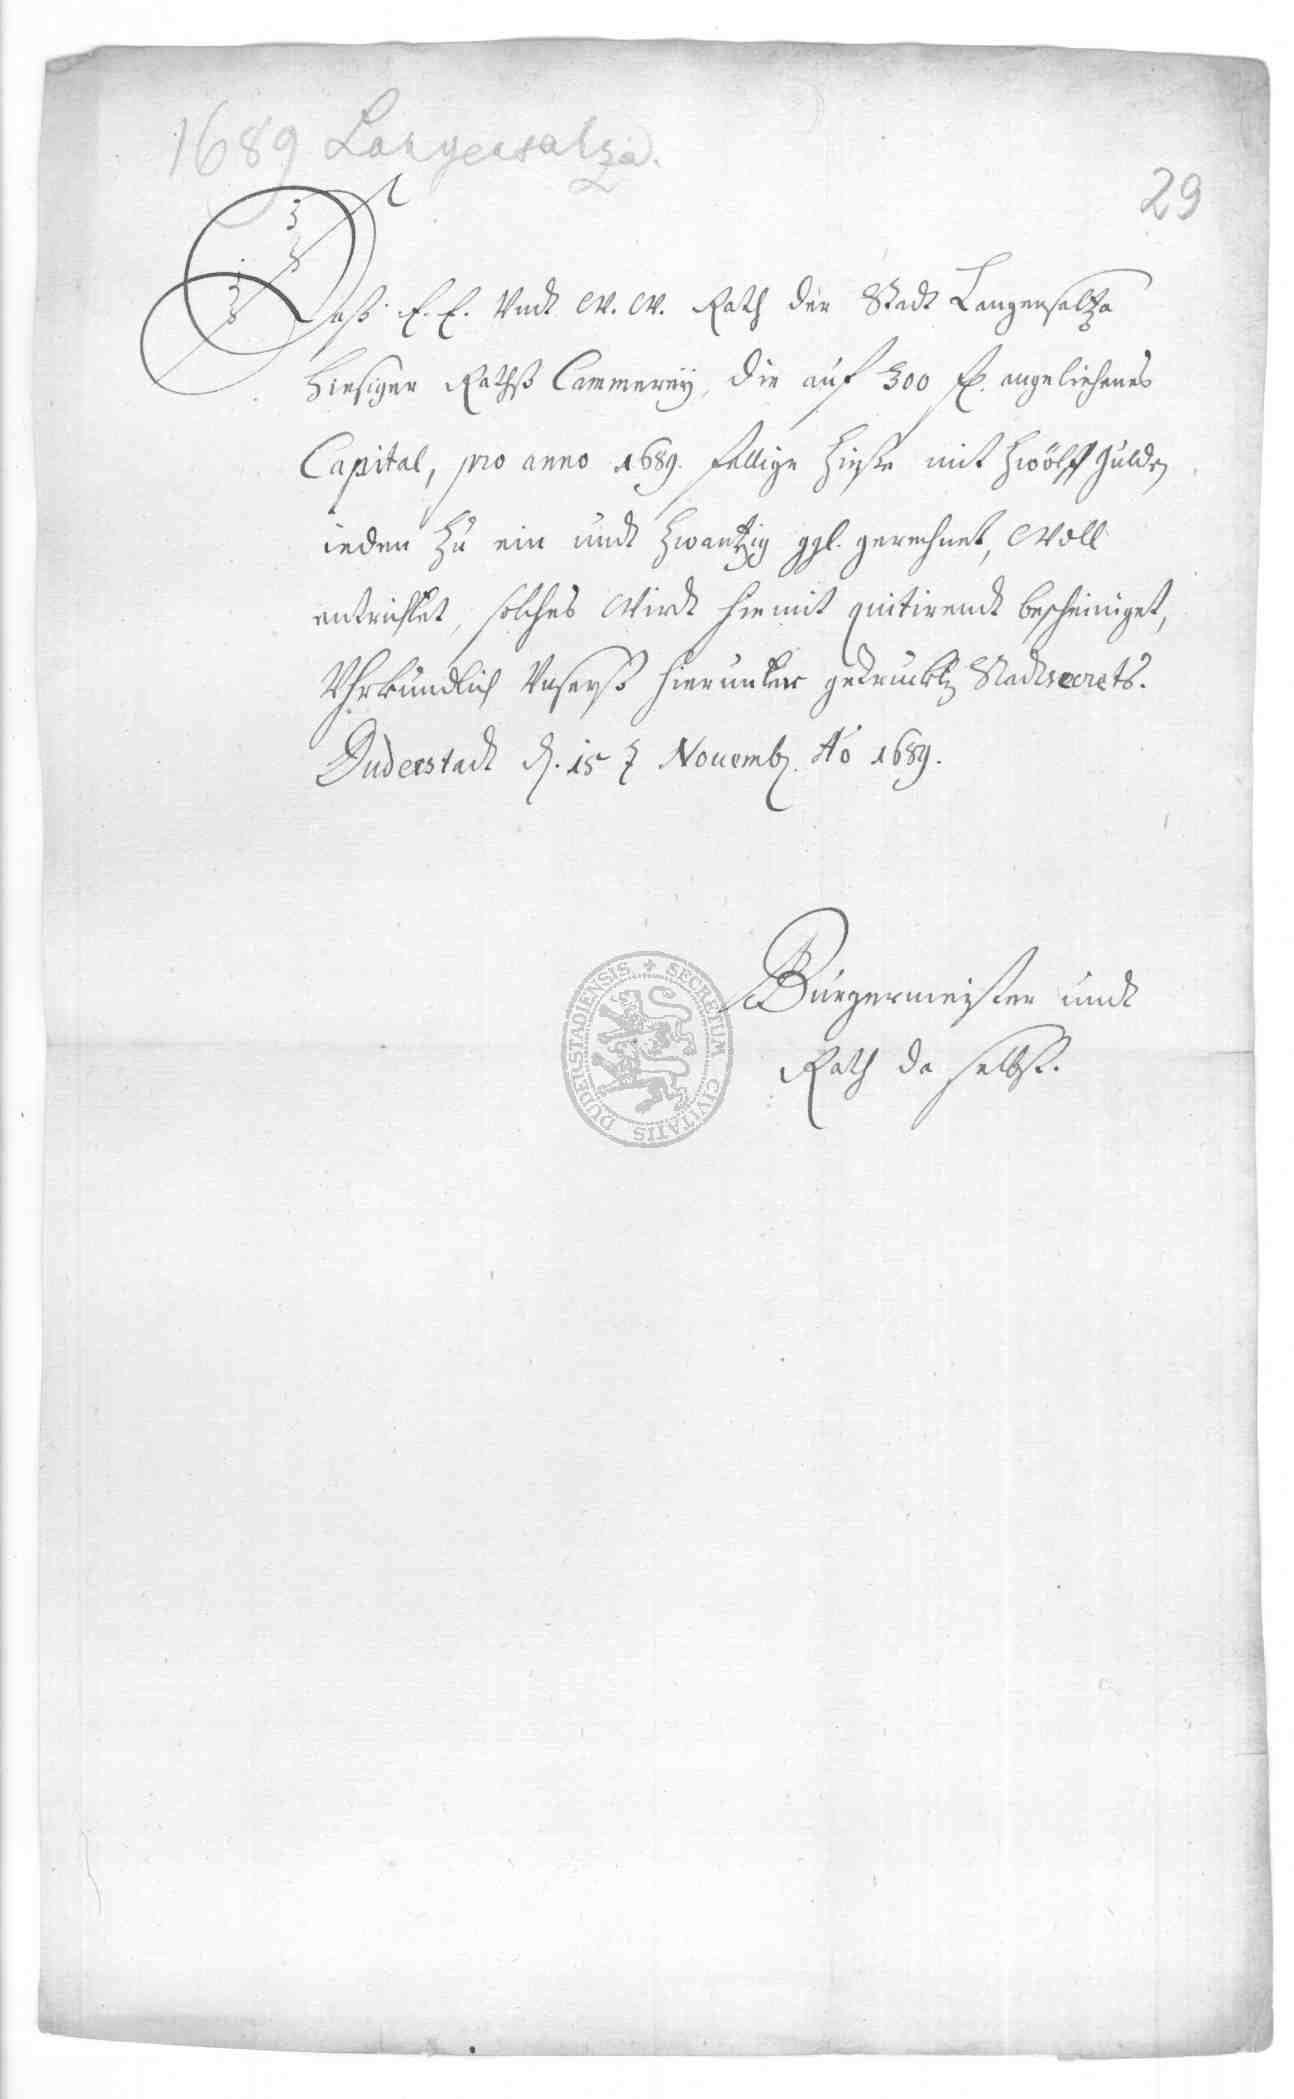 1689 Langensalza.
29
Daß E. E. Vndt W. W. Rath der Stadt Langensaltza
hiesiger Rathß Cammereÿ, die auf 300 fl. angeliehenes
Capital, pro anno 1689. fellige Zinße mit Zwölff Gulden
ieden Zu ein undt Zwantzig ggl. gerechnet, Woll
entrichtet, solches Wirdt hiemit quitirendt bescheiniget,
Vhrkundlich Vnserß hierunter getruckten Stadtsecrets.
Duderstadt d. 15 Novemb. Ao 1689.
Bürgermeister undt
Rath da selbst.
SECRETUM CIVITATIS DUDERSTADIENSIS